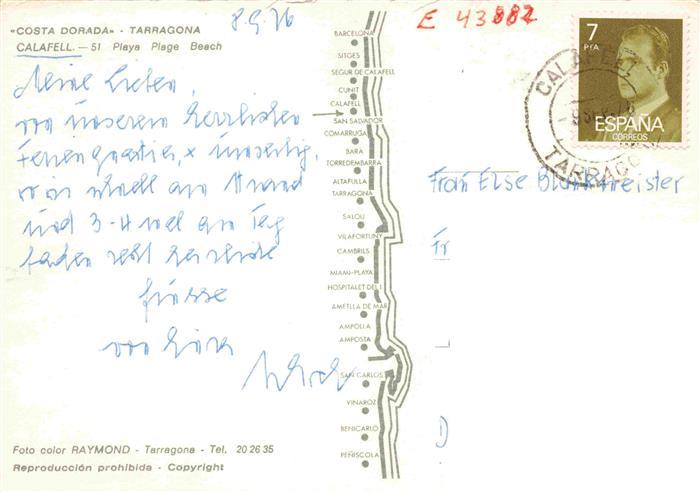 8.9.76
E 43882
«COSTA DORADA» - TARRAGONA
CALAFELL. — 51 Playa Plage Beach
Meine Lieben,
von unserem herrlichen
Ferienquartier
wo wir am Strand
und 3-4 mal am Tag
baden
Grüsse
von
BARCELONA
SITGES
SEGUR DE CALAFELL
CUNIT
CALAFELL
SAN SALVADOR
COMARRUGA
BARA
TORREDEMBARRA
ALTAFULLA
TARRAGONA
SALOU
VILAFORTUNY
CAMBRILS
MIAMI-PLAYA
HOSPITALET DEL I.
AMETLLA DE MAR
AMPOLLA
AMPOSTA
SAN CARLOS
VINAROZ
BENICARLO
PEÑISCOLA
7
PTA
ESPAÑA
CORREOS
CALAFELL
TARRAGONA
Frau Else
Fr
D
Foto color RAYMOND - Tarragona - Tel. 20 26 35
Reproducción prohibida - Copyright